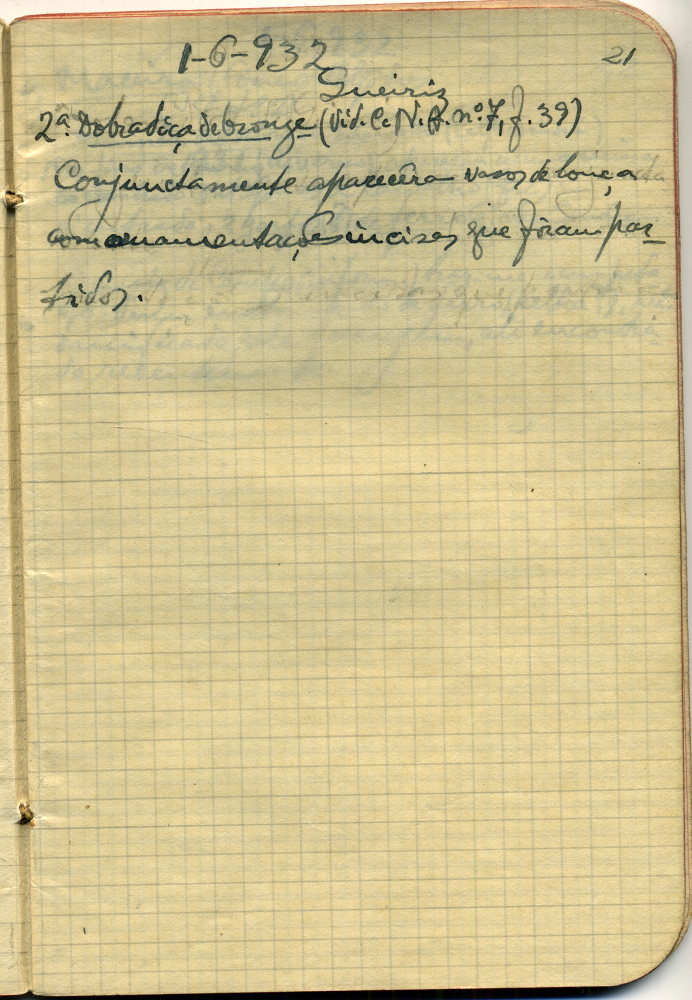 1-6-932
21
Gueiriz
2ª. Dobradiça de bronze (Vid. C. N. A. nº. 7, f. 39)
Conjunctamente aparecêra vasos de louça
com ornamentações incisas, que fôram par-
tidos.